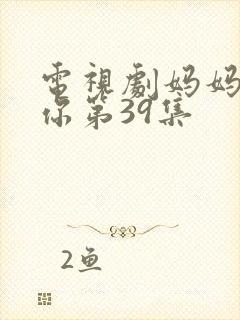 電視劇妈妈
你第39集
2鱼